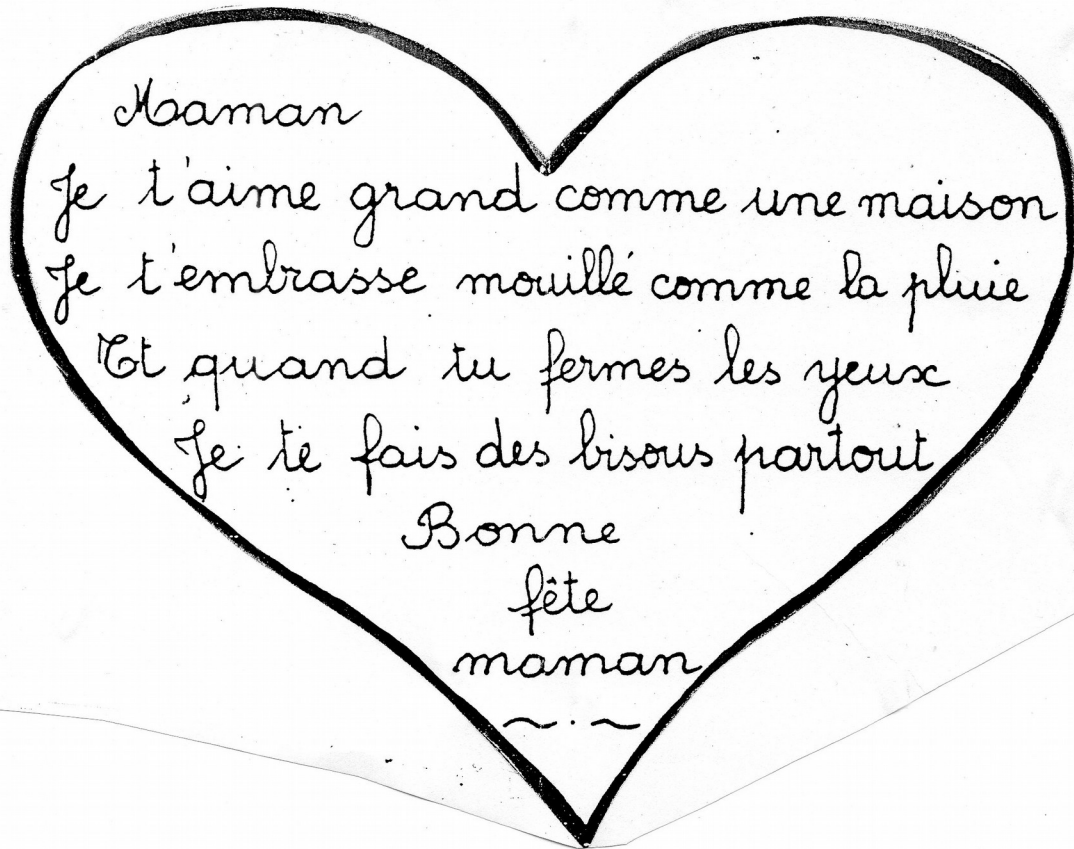 Maman
Je t'aime grand comme une maison
Je t'embrasse mouillé comme la pluie
Et quand tu fermes les yeux
Je te fais des bisous partout
Bonne
fête
maman